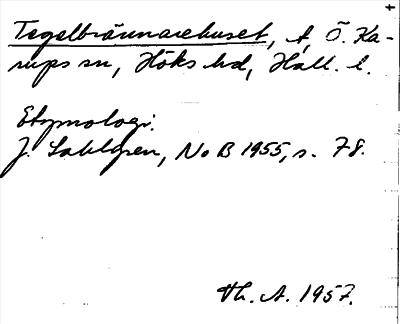 Tegelbrännarehuset, t, Ö. Ka-
rups sn, Höks hd, Hall. l.
Etymologi.
J. Sahlgren, NoB 1955, s. 78.
Th. A. 1957.